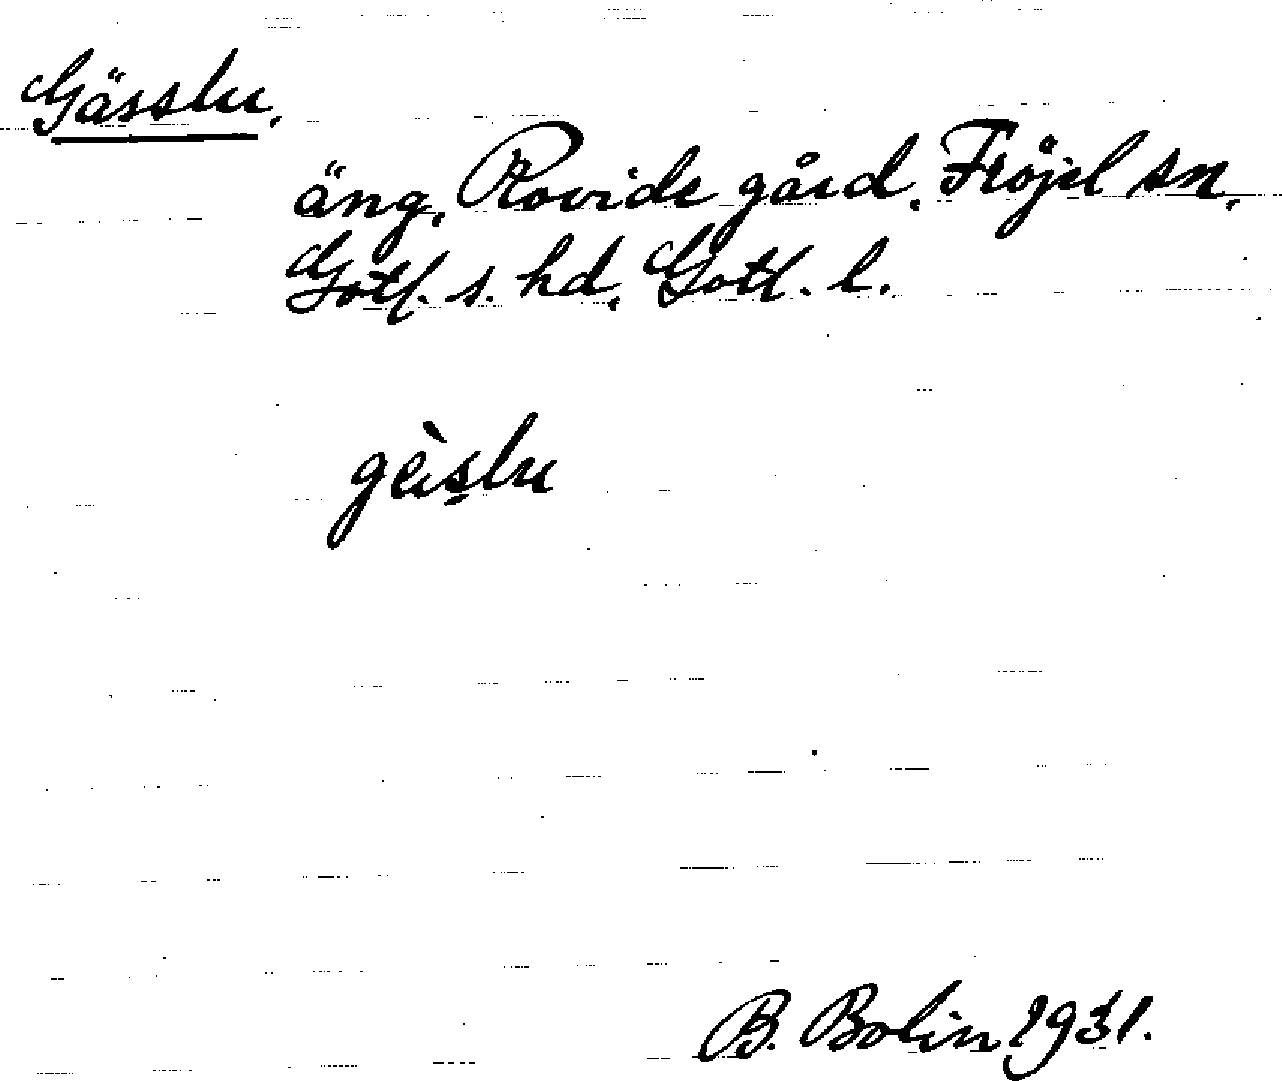 Gässlu,
äng, Rovide gård, Fröjel sn,
Gotl. s. hd, Gotl. l.
gèi̯slu
B. Bolin 1931.